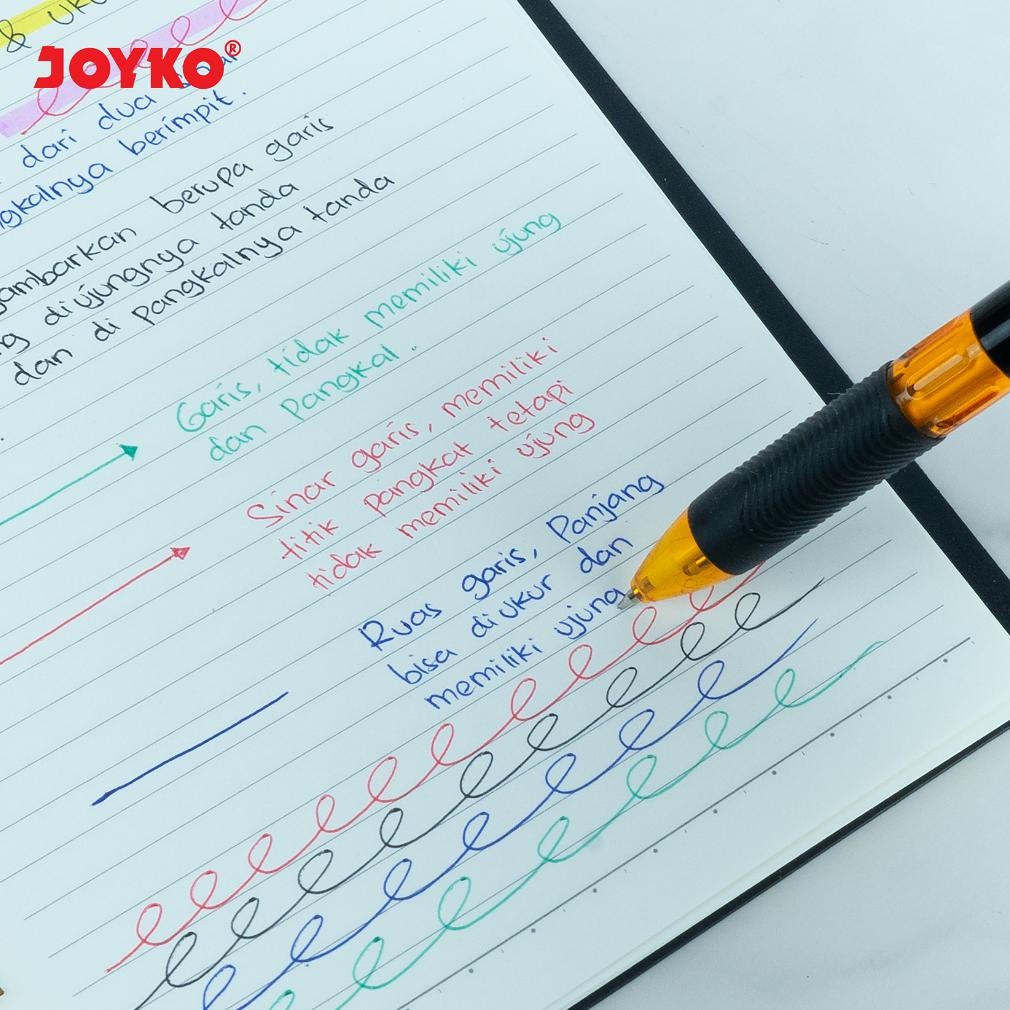 & uku
JOYKO®
dari dua
ngkalnya berimpit.
gambarkan berupa garis
ng diujungnya tanda
dan di pangkalnya tanda
Garis, tidak memiliki ujung
dan Pangkal.
Sinar garis, memiliki
titik pangkat tetapi
tidak memiliki ujung
Ruas garis, Panjang
bisa diukur dan
memiliki ujung